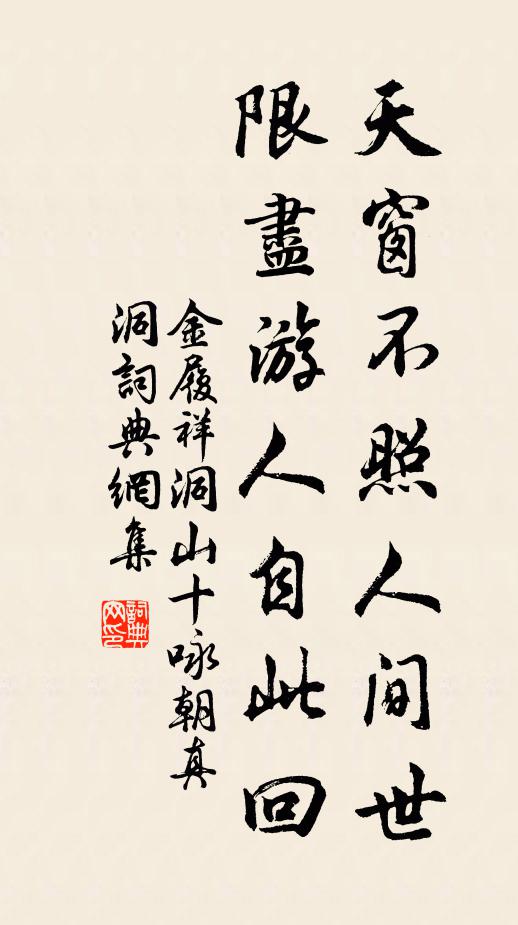 天窗不照人間世
限盡游人自此回
金履祥洞山十咏朝真
洞詞典網集
詞典網印